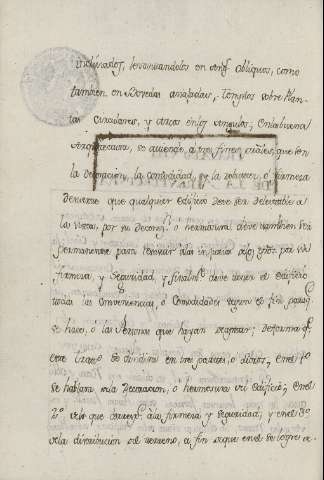 inclinados, levantandolos en angs. obliquos, como
tambien en Bovedas anulares, Templos sobre Plan-
tas circulares, y arcos en los angulos; En la buena
Arquitectura, se atiende a tres fines, quales, que son
la Decoracion, la comodidad, y la robustez, ó firmeza
de suerte que qualquier edificio deve ser deleitable a
la vista, por su decoron. ó hermosura, deve tambien ser
permanente para resistir
firmeza, y seguridad, y finalmte. deve tener el Edificio
todas las Conveniencias, ó Comodidades segun el fin para q.
se hace, ó las Personas que hayan de de forma q.
este trat.o se dividirá en tres partes, ó libros, en el 1.o
se hablará de la Decoracion, ó hermosura del Edificio; En el
2.o de lo que a la firmeza y seguridad; y en el 3.o
de la distribucion del terreno, a fin de que en el se logre la